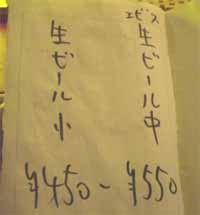 エビス
生ビール中
生ビール小
¥450~¥550